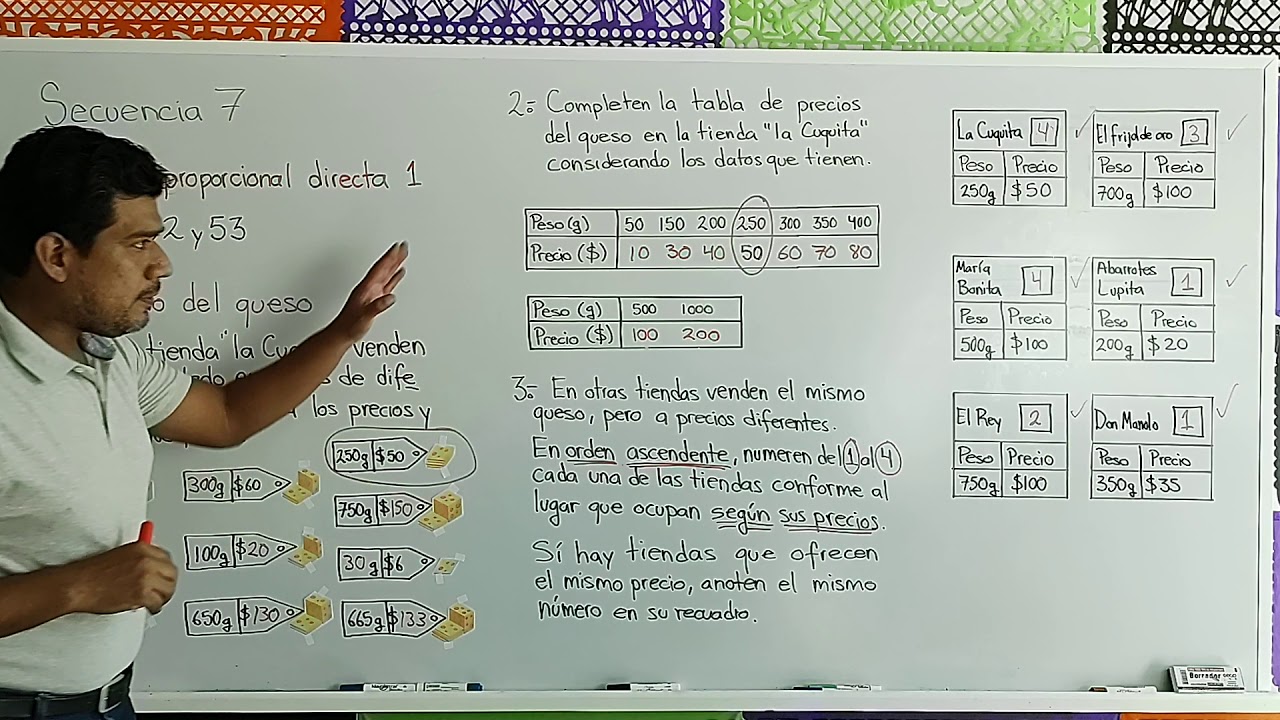 Secuencia 7
proporcional directa 1
2 y 53
del queso
tienda "la
venden
de dife
los precios y
250g $50
300g $60
750g $150
100g $20
30g $6
650g $130
665g $133
2.- Completen la tabla de precios
del queso en la tienda "la Cuquita"
considerando los datos que tienen.
Peso (g) 50 150 200 250 300 350 400
Precio ($) 10 30 40 50 60 70 80
Peso (g) 500 1000
Precio ($) 100 200
3.- En otras tiendas venden el mismo
queso, pero a precios diferentes.
En orden ascendente, numeren del 1 al 4
cada una de las tiendas conforme al
lugar que ocupan según sus precios.
Sí hay tiendas que ofrecen
el mismo precio, anoten el mismo
número en su recuadro.
La Cuquita 4
Peso Precio
250g $50
El frijol de oro 3
Peso Precio
700g $100
María
Bonita 4
Peso Precio
500g $100
Abarrotes
Lupita 1
Peso Precio
200g $20
El Rey 2
Peso Precio
750g $100
Don Manolo 1
Peso Precio
350g $35
Borrador